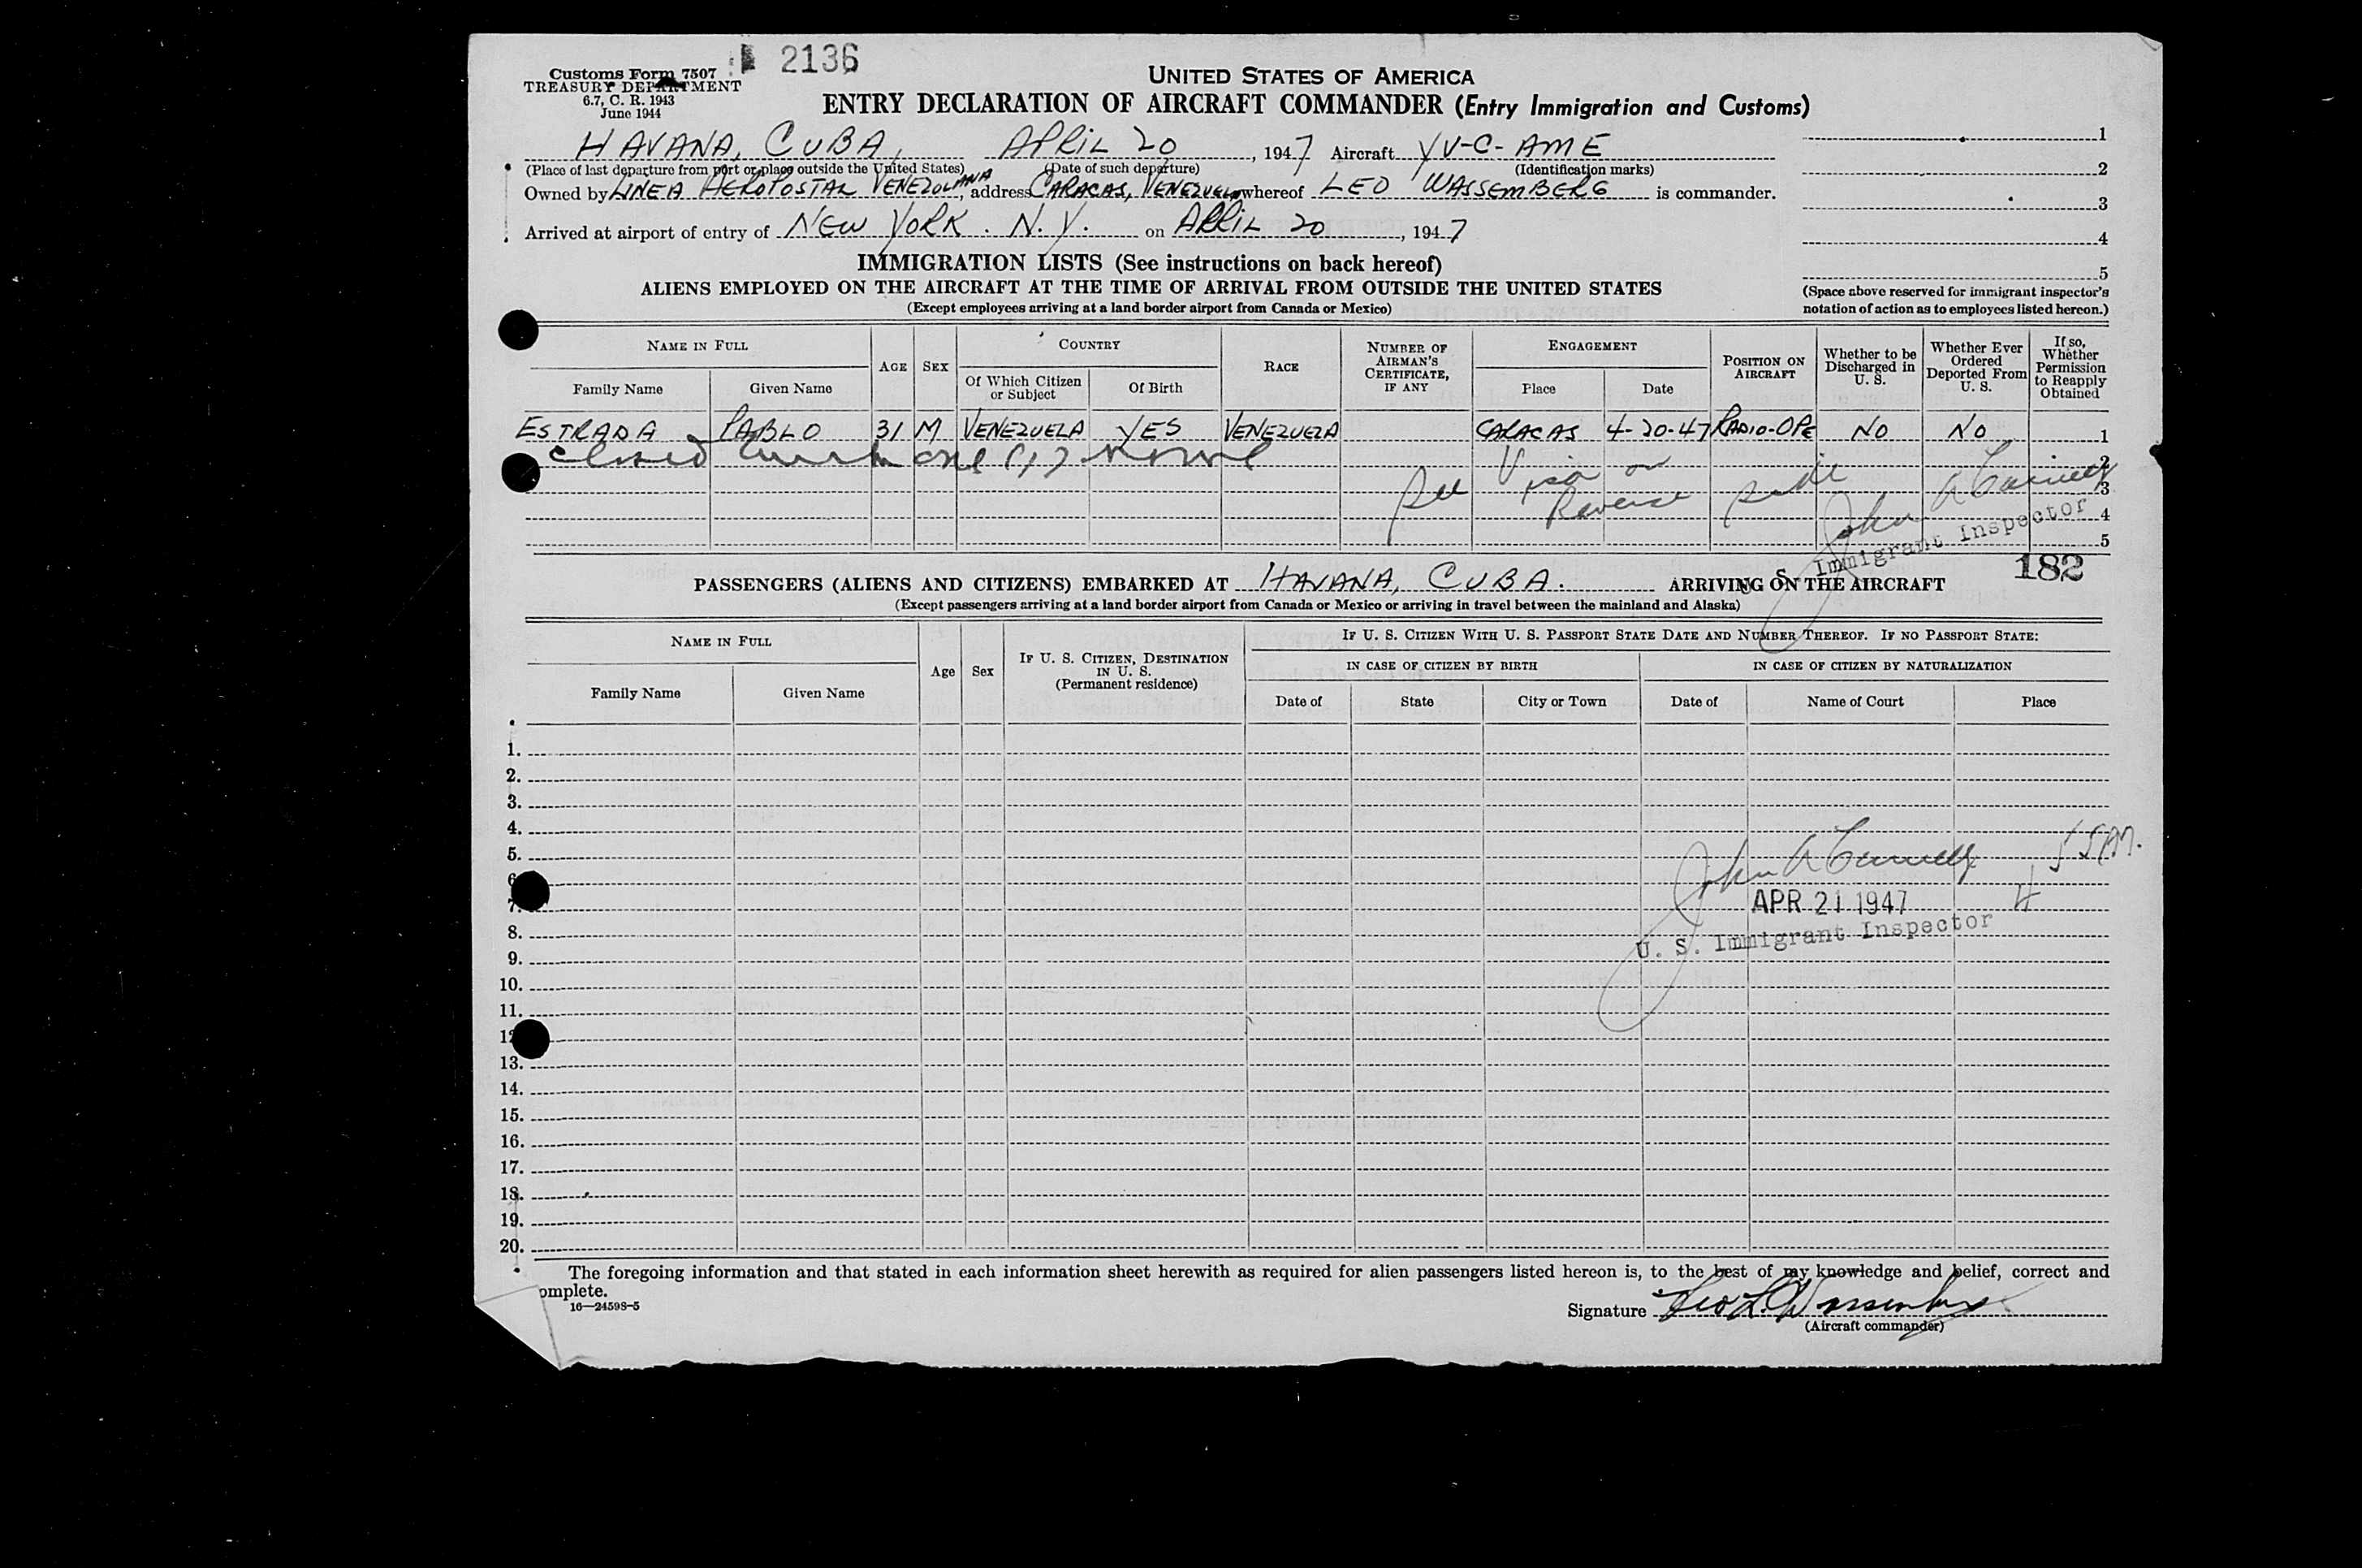 2136
Customs Form 7507
TREASURY DEPARTMENT
6.7, C. R. 1943
June 1944
UNITED STATES OF AMERICA
ENTRY DECLARATION OF AIRCRAFT COMMANDER (Entry Immigration and Customs)
HAVANA, CUBA, APRIL 20, 1947 Aircraft YV-C-AME
(Place of last departure from port or place outside the United States) (Date of such departure) (Identification marks)
Owned by LINEA AEROPOSTAL VENEZOLANA, address CARACAS, VENEZUELA, whereof LEO WASSEMBERG is commander.
Arrived at airport of entry of NEW YORK. N.Y. on APRIL 20, 1947
1
2
3
4
5
(Space above reserved for immigrant inspector's
notation of action as to employees listed hereon.)
IMMIGRATION LISTS (See instructions on back hereof)
ALIENS EMPLOYED ON THE AIRCRAFT AT THE TIME OF ARRIVAL FROM OUTSIDE THE UNITED STATES
(Except employees arriving at a land border airport from Canada or Mexico)
NAME IN FULL AGE SEX COUNTRY RACE NUMBER OF AIRMAN'S CERTIFICATE, IF ANY ENGAGEMENT POSITION ON AIRCRAFT Whether to be Discharged in U. S. Whether Ever Ordered Deported From U. S. If so, Whether Permission to Reapply Obtained
Family Name Given Name Of Which Citizen or Subject Of Birth Place Date
ESTRADA PABLO 31 M VENEZUELA YES VENEZUELA CARACAS 4-20-47 RADIO-OPE NO NO 1
closed with one (1) name 2
See Visa on Reverse side 3
John A 4
U. S. Immigrant Inspector 5
182
PASSENGERS (ALIENS AND CITIZENS) EMBARKED AT HAVANA, CUBA. ARRIVING ON THE AIRCRAFT
(Except passengers arriving at a land border airport from Canada or Mexico or arriving in travel between the mainland and Alaska)
NAME IN FULL Age Sex IF U. S. CITIZEN, DESTINATION IN U. S. (Permanent residence) IF U. S. CITIZEN WITH U. S. PASSPORT STATE DATE AND NUMBER THEREOF. IF NO PASSPORT STATE:
IN CASE OF CITIZEN BY BIRTH IN CASE OF CITIZEN BY NATURALIZATION
Family Name Given Name Date of State City or Town Date of Name of Court Place
1.
2.
3.
4.
5.
6
7.
8.
9.
10.
11.
12
13.
14.
15.
16.
17.
18.
19.
20.
John A
APR 21 1947
U. S. Immigrant Inspector
The foregoing information and that stated in each information sheet herewith as required for alien passengers listed hereon is, to the best of my knowledge and belief, correct and
omplete.
16—24598-5
Signature Leo L. Wassenberg
(Aircraft commander)